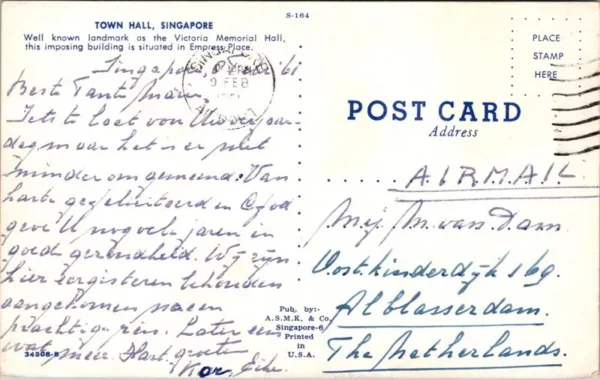 S-164
TOWN HALL, SINGAPORE
Well known landmark as the Victoria Memorial Hall,
this imposing building is situated in Empress Place.
Singapore '61
Beste Tante Marie,
Iets te laat voor Uw verjaar-
dag maar het is er niet
minder om gemeend. Van
harte gefeliciteerd en God
geve U nog vele jaren in
goed gezondheid. Wij zijn
hier eergisteren behouden
aangekomen na een
prachtige reis. Later een
wat meer. Hart. groeten
Kor,
34508-B
SINGAPORE
9 FEB
PLACE
STAMP
HERE
POST CARD
Address
AIRMAIL
Mej. M. van Dam
Oostkinderdijk 169.
Alblasserdam.
The Netherlands.
Pub. by:-
A.S.M.K. & Co.
Singapore-6
Printed
in
U.S.A.